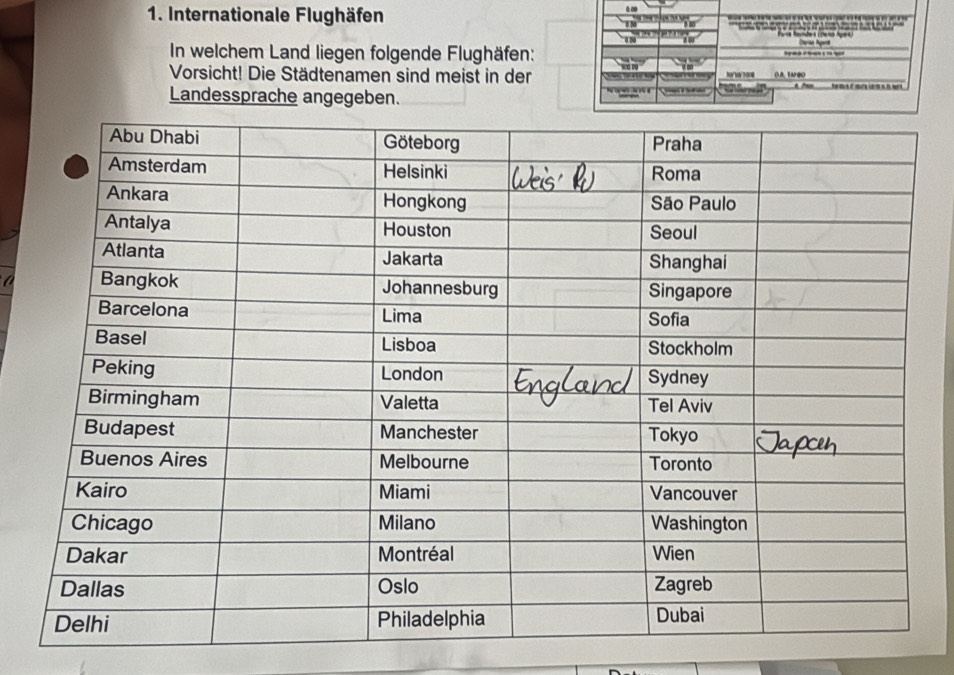 1. Internationale Flughäfen
In welchem Land liegen folgende Flughäfen:
Vorsicht! Die Städtenamen sind meist in der
Landessprache angegeben.
Abu Dhabi Göteborg Praha
Amsterdam Helsinki Weis' Roma
Ankara Hongkong São Paulo
Antalya Houston Seoul
Atlanta Jakarta Shanghai
Bangkok Johannesburg Singapore
Barcelona Lima Sofia
Basel Lisboa Stockholm
Peking London England Sydney
Birmingham Valetta Tel Aviv
Budapest Manchester Tokyo Japan
Buenos Aires Melbourne Toronto
Kairo Miami Vancouver
Chicago Milano Washington
Dakar Montréal Wien
Dallas Oslo Zagreb
Delhi Philadelphia Dubai